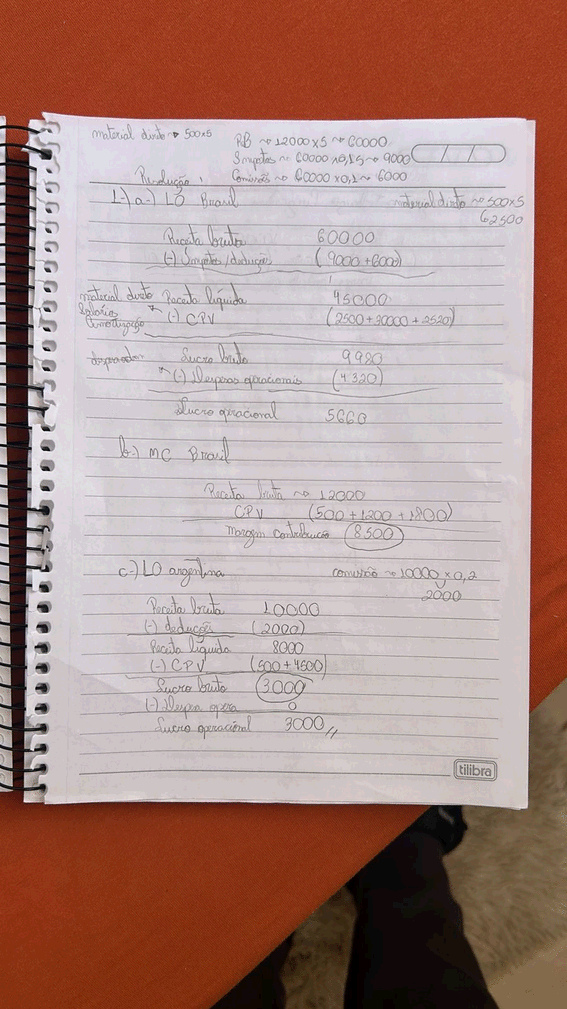 material direto ~> 500x5
RB ~> 12000 x 5 ~> 60000
Impostos ~> 60000 x 0,15 ~> 9000
Comissões ~> 60000 x 0,1 ~> 6000
Resolução:
1-) a-) LO Brasil
material direto ~> 500x5
2500
Receita bruta 60000
(-) Impostos/deduções (9000 + 6000)
material direto
Salário
Amortização
Receita líquida 45000
(-) CPV (2500 + 30000 + 2520)
Lucro bruto 9980
(-) Despesas operacionais (4320)
Lucro operacional 5660
b-) MC Brasil
Receita bruta ~> 12000
CPV (500 + 1200 + 1800)
Margem contribuição 8500
c-) LO argentina
comissão ~> 10000 x 0,2
2000
Receita bruta 10000
(-) deduções (2000)
Receita líquida 8000
(-) CPV (500 + 4500)
Lucro bruto 3000
(-) Despesa opera 0
Lucro operacional 3000,,
tilibra